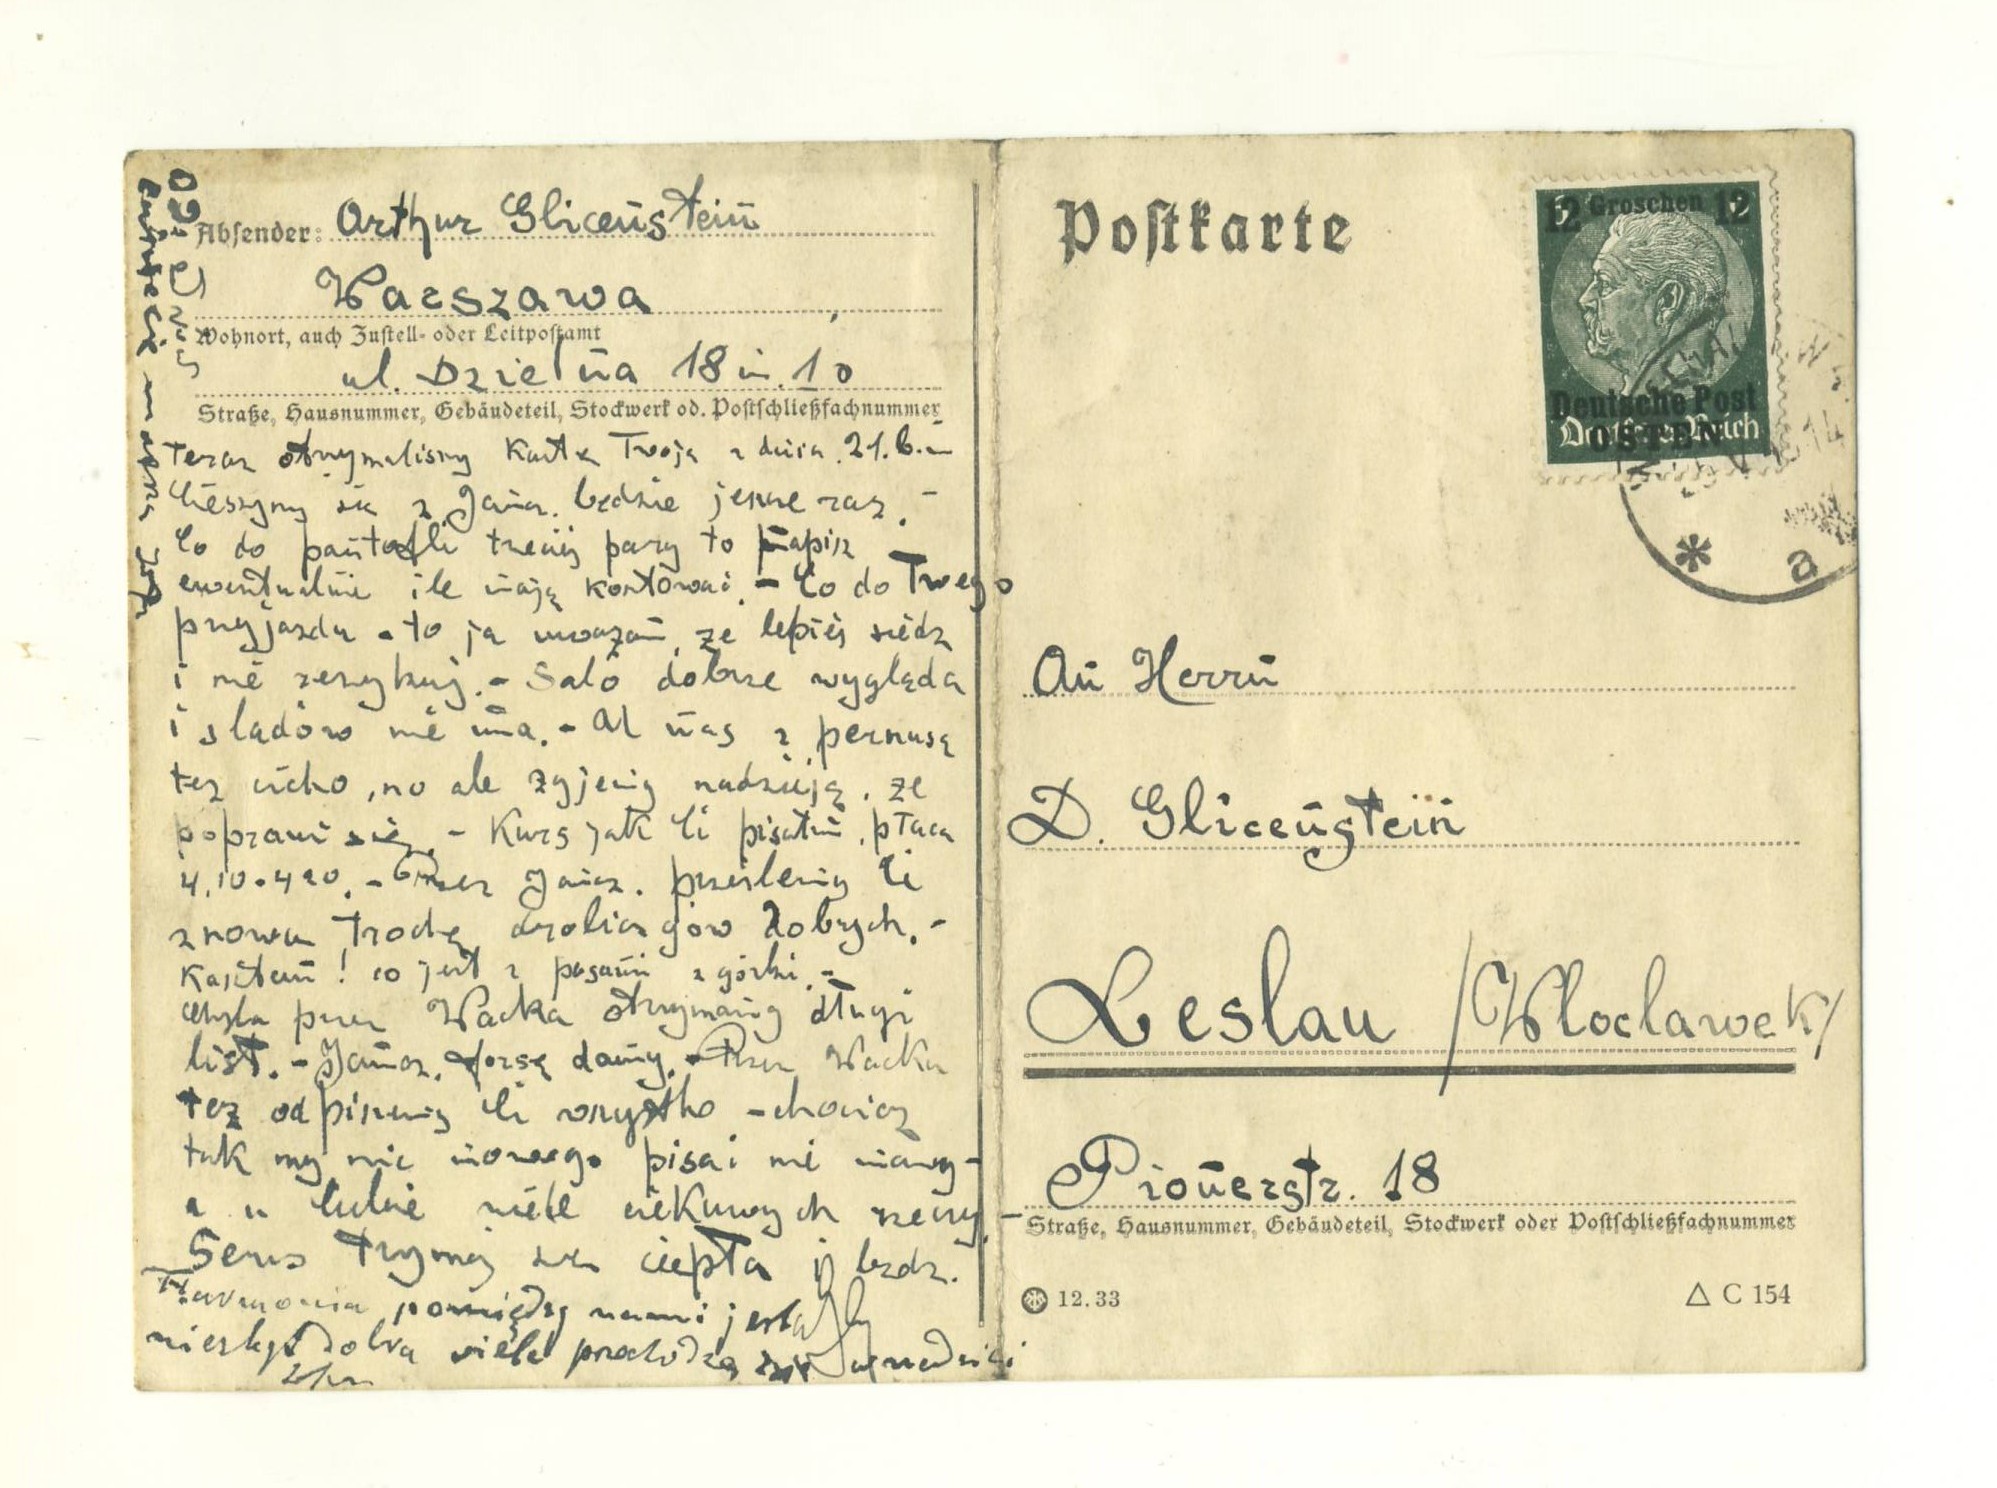 Absender: Arthur Glicenstein
Warszawa
Wohnort, auch Zustell- oder Leitpostamt
ul. Dzielna 18 m. 10
Straße, Hausnummer, Gebäudeteil, Stockwerk od. Postschließfachnummer
Teraz otrzymaliśmy kartkę Twoją z dnia 21. b.m
Cieszymy się z będzie jeszcze raz. -
Co do pantofli trzeciej pary to napisz
ewentualnie ile mają kosztować. - Co do Twego
przyjazdu - to ja uważam, że lepiej siedź
i nie ryzykuj. - Salo dobrze wygląda
i śladów nie ma. - U nas z
też cicho, no ale żyjemy nadzieją, że
poprawi się. - Kurs jak Ci pisałem, płacą
4,10-420. - Przez prześlemy Ci
znowu trochę dobrych. -
! co jest z
Chyba przez Wacka otrzymamy długi
list. - forsę damy. - Przez Wacka
też odpiszemy Ci wszystko - chociaż
tak my nic nowego pisać nie mamy -
a u Ciebie wiele ciekawych rzeczy. -
Serus trzymaj się ciepło i bądź.
Harmonia pomiędzy nami jest
niezbyt dobra wiele
Postkarte
12 Groschen 12
Deutsche Post
OSTEN
Deutsches Reich
* a
An Herrn
D. Glicenstein
Leslau /Wloclawek/
Pionerstr. 18
Straße, Hausnummer, Gebäudeteil, Stockwerk oder Postschließfachnummer
12.33
△ C 154